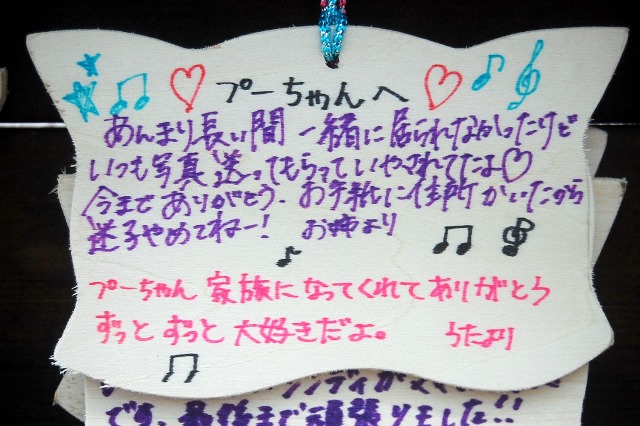 プーちゃんへ
あんまり長い間 一緒に居られなかったけど
いつも写真送ってもらっていやされてたよ♡
今までありがとう。お手紙に住所かいたから
迷子やめてねー! お姉より
プーちゃん 家族になってくれてありがとう
ずっとずっと大好きだよ。 うたより
です。最後まで頑張りました!!